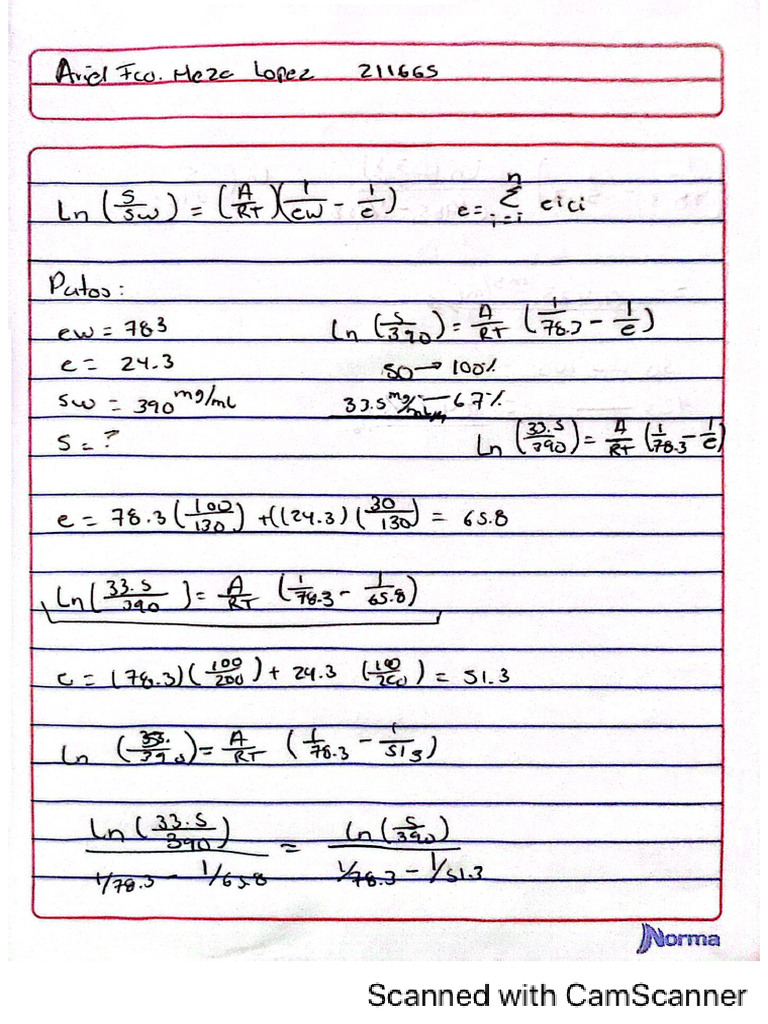 Ariel Fco. Meza Lopez 211665
Ln (S/Sw) = (A/RT)(1/ew - 1/e) e = Σ n i=i eici
Datos:
ew = 783 Ln (S/390) = A/RT (1/78.3 - 1/e)
e = 24.3 50 → 100%
sw = 390 mg/mL 33.5 mg/mL — 67%
S = ? Ln (33.5/390) = A/RT (1/78.3 - 1/e)
e = 78.3 (100/130) + ((24.3) (30/130) = 65.8
Ln (33.5/390) = A/RT (1/78.3 - 1/65.8)
e = (78.3)(100/200) + 24.3 (100/200) = 51.3
Ln (33./390) = A/RT (1/78.3 - 1/51.3)
Ln (33.5/390) / 1/78.3 - 1/65.8 = Ln (S/390) / 1/78.3 - 1/51.3
Norma
Scanned with CamScanner